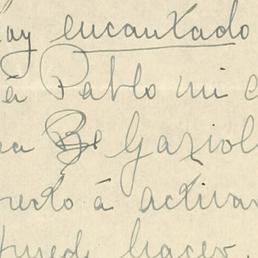 ay encantado
á Pablo mi
a Be Gaziol
recto á activar
pued hacer.